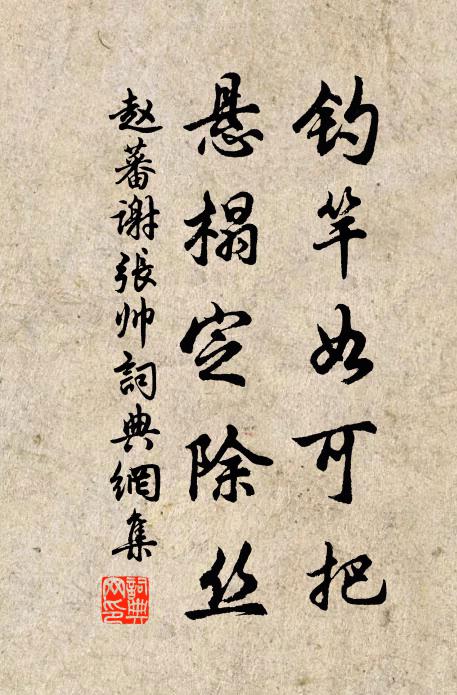 钓竿如可把
悬榻定除丝
赵蕃谢张帅詞典網集
詞典网印